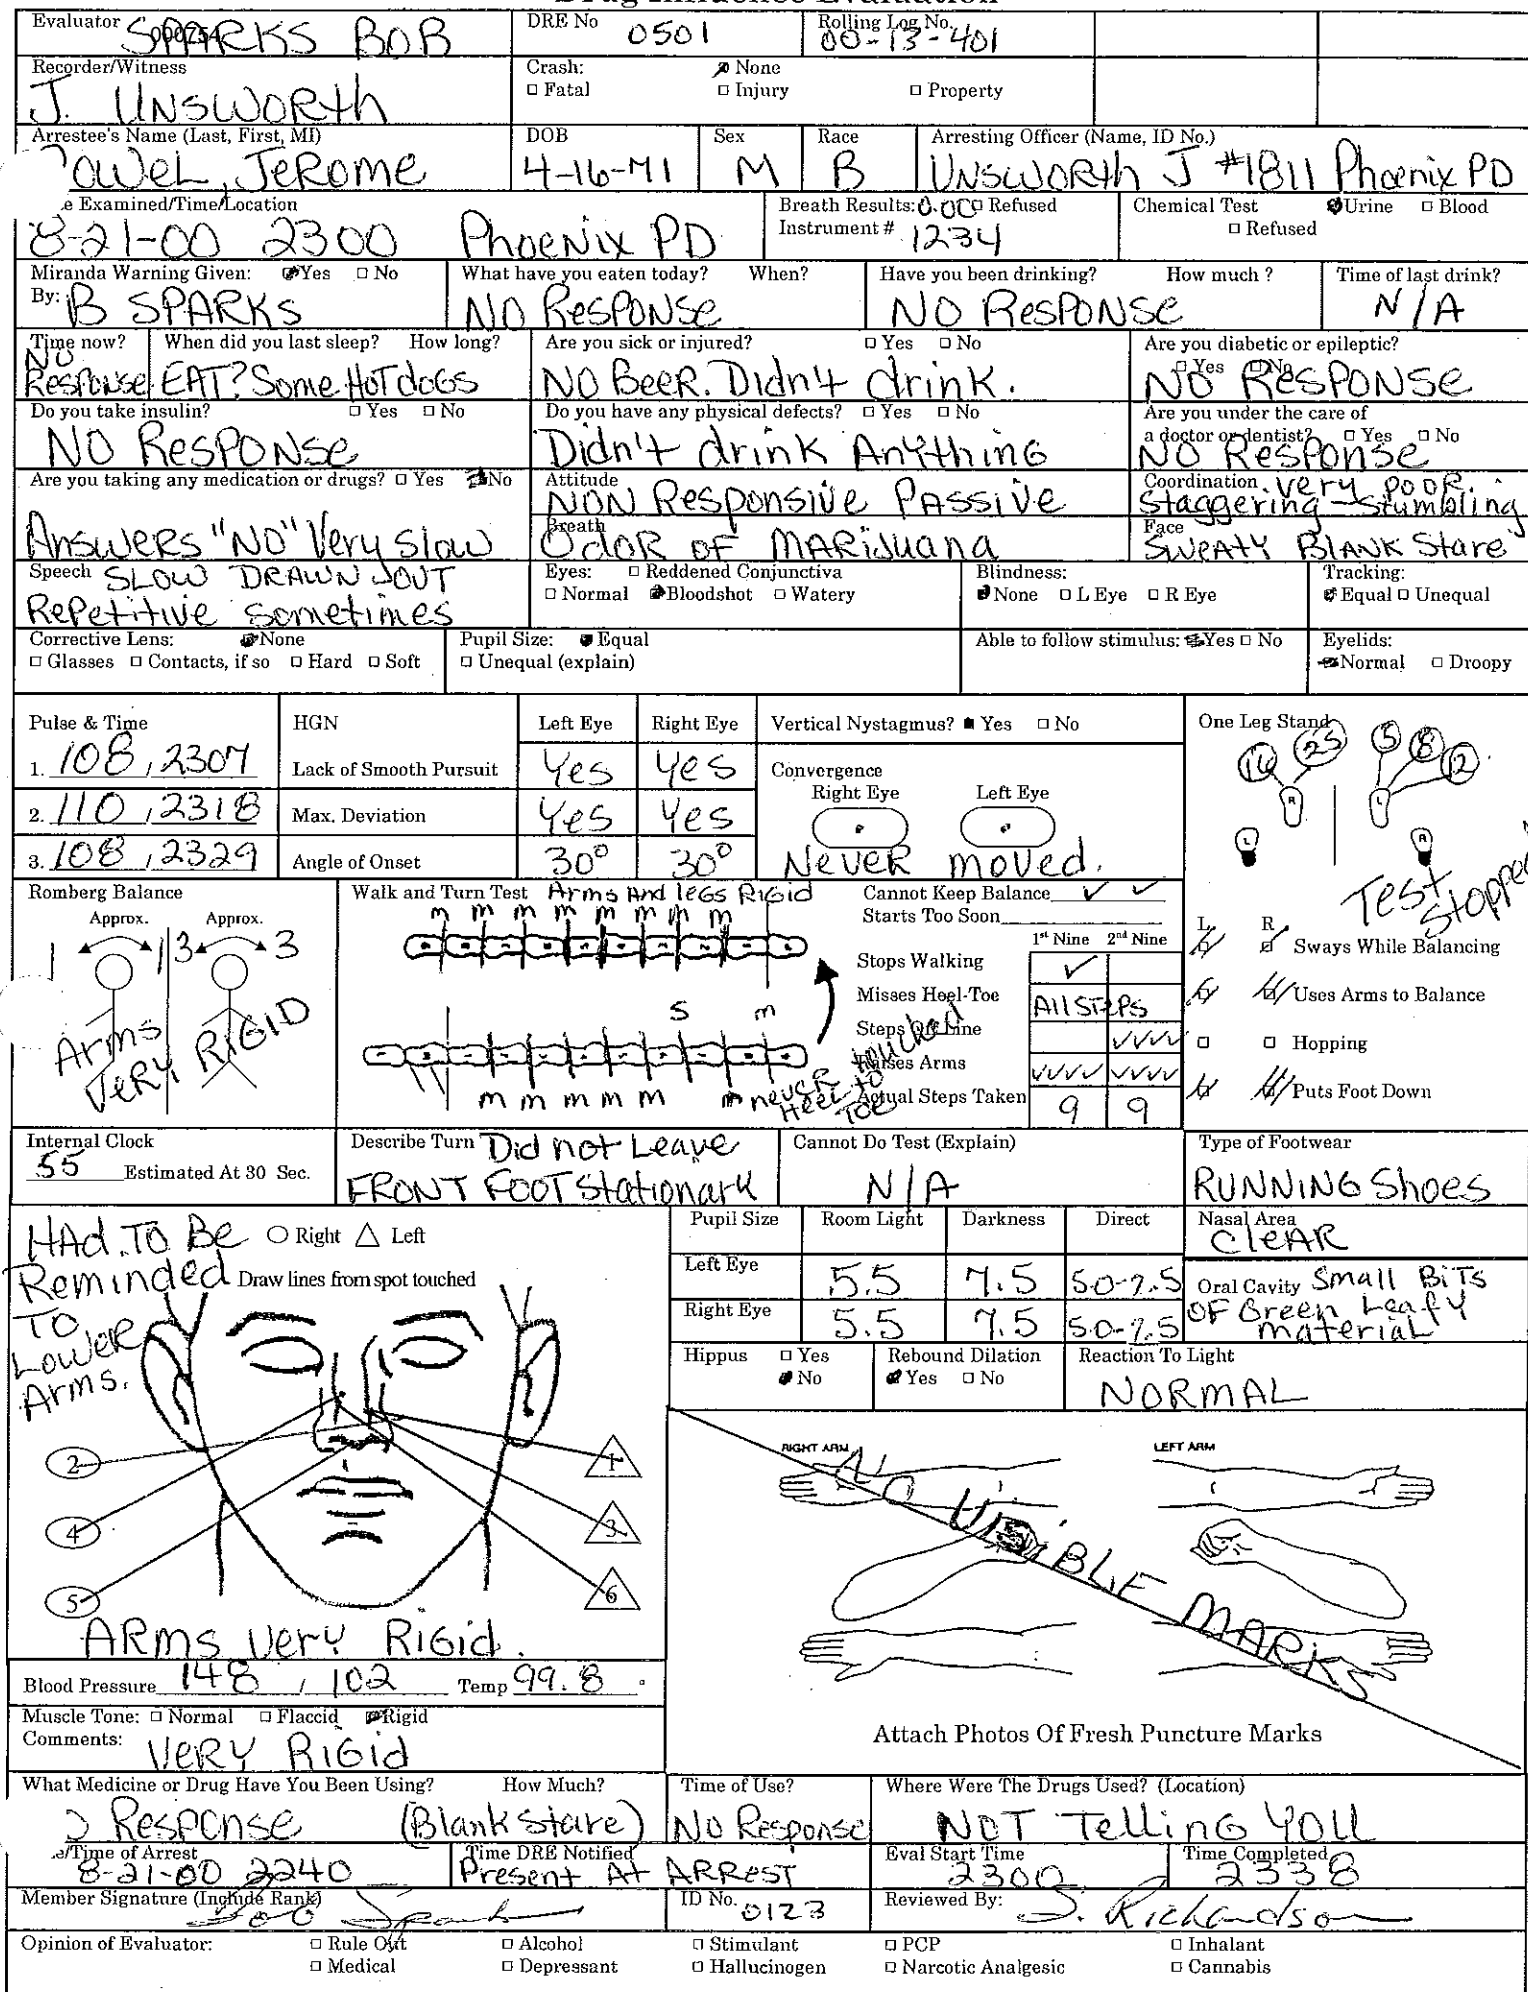 Evaluator SPARKS BOB
000254
DRE No 0501
Rolling Log No. 00-13-401
Recorder/Witness
J. UNSWORTH
Crash: None
Fatal Injury Property
Arrestee's Name (Last, First, MI)
OWEL, JEROME
DOB
4-16-71
Sex
M
Race
B
Arresting Officer (Name, ID No.)
UNSWORTH J #1811 Phoenix PD
e Examined/Time/Location
8-21-00 2300 Phoenix PD
Breath Results: 0.00 Refused
Instrument # 1234
Chemical Test Urine Blood
Refused
Miranda Warning Given: Yes No
By: B SPARKS
What have you eaten today? When?
NO RESPONSE
Have you been drinking? How much ?
NO RESPONSE
Time of last drink?
N/A
Time now?
NO
RESPONSE
When did you last sleep? How long?
EAT? Some HOT dOGS
Are you sick or injured? Yes No
NO BEER. Didn't drink.
Are you diabetic or epileptic?
Yes No
NO RESPONSE
Do you take insulin? Yes No
NO RESPONSE
Do you have any physical defects? Yes No
Didn't drink Anything
Are you under the care of
a doctor or dentist? Yes No
NO Response
Are you taking any medication or drugs? Yes No
Answers "NO" Very Slow
Attitude
NON Responsive PASSIVE
Coordination very POOR.
Staggering - Stumbling
Breath
Odor OF MARIJuana
Face
SWEATY BLANK Stare
Speech SLOW DRAWN OUT
Repetitive Sometimes
Eyes: Reddened Conjunctiva
Normal Bloodshot Watery
Blindness:
None L Eye R Eye
Tracking:
Equal Unequal
Corrective Lens: None
Glasses Contacts, if so Hard Soft
Pupil Size: Equal
Unequal (explain)
Able to follow stimulus: Yes No
Eyelids:
Normal Droopy
Pulse & Time
1. 108, 2307
2. 110, 2318
3. 108, 2329
HGN Left Eye Right Eye
Lack of Smooth Pursuit Yes Yes
Max. Deviation Yes Yes
Angle of Onset 30° 30°
Vertical Nystagmus? Yes No
Convergence
Right Eye Left Eye
Never moved.
One Leg Stand
16 25 5 8 12
R L
L R
Test Stopped
Romberg Balance
Approx. Approx.
1 1 3 3
Arms Very RIGID
Walk and Turn Test Arms And legs RIGID
m m m m m m m m
S m
m m m m m m
never touched Heel to Toe
Cannot Keep Balance
Starts Too Soon
1st Nine 2nd Nine
Stops Walking
Misses Heel-Toe All STEPS
Steps Off Line
Raises Arms
Actual Steps Taken 9 9
L R
Sways While Balancing
Uses Arms to Balance
Hopping
Puts Foot Down
Internal Clock
55 Estimated At 30 Sec.
Describe Turn Did not Leave
FRONT FOOT Stationary
Cannot Do Test (Explain)
N/A
Type of Footwear
RUNNING Shoes
HAd TO Be
Reminded
TO
LOWER
Arms.
Right Left
Draw lines from spot touched
2 1
4 3
5 6
ARMS Very RIGid.
Pupil Size Room Light Darkness Direct
Left Eye 5.5 7.5 5.0-7.5
Right Eye 5.5 7.5 5.0-7.5
Nasal Area
CLEAR
Oral Cavity Small BITS
OF Green Leafy
material
Hippus Yes
No
Rebound Dilation
Yes No
Reaction To Light
NORMAL
RIGHT ARM LEFT ARM
NO VISIBLE MARKS
Attach Photos Of Fresh Puncture Marks
Blood Pressure 148 / 102 Temp 99.8 °
Muscle Tone: Normal Flaccid Rigid
Comments: VERY RIGid
What Medicine or Drug Have You Been Using? How Much?
Response (Blank stare)
Time of Use?
No Response
Where Were The Drugs Used? (Location)
NOT Telling YOU
e/Time of Arrest
8-21-00 2240
Time DRE Notified
Present At ARREST
Eval Start Time
2300
Time Completed
2338
Member Signature (Include Rank)
Bob Spark
ID No. 0123
Reviewed By: S. Richardson
Opinion of Evaluator: Rule Out Alcohol Stimulant PCP Inhalant
Medical Depressant Hallucinogen Narcotic Analgesic Cannabis